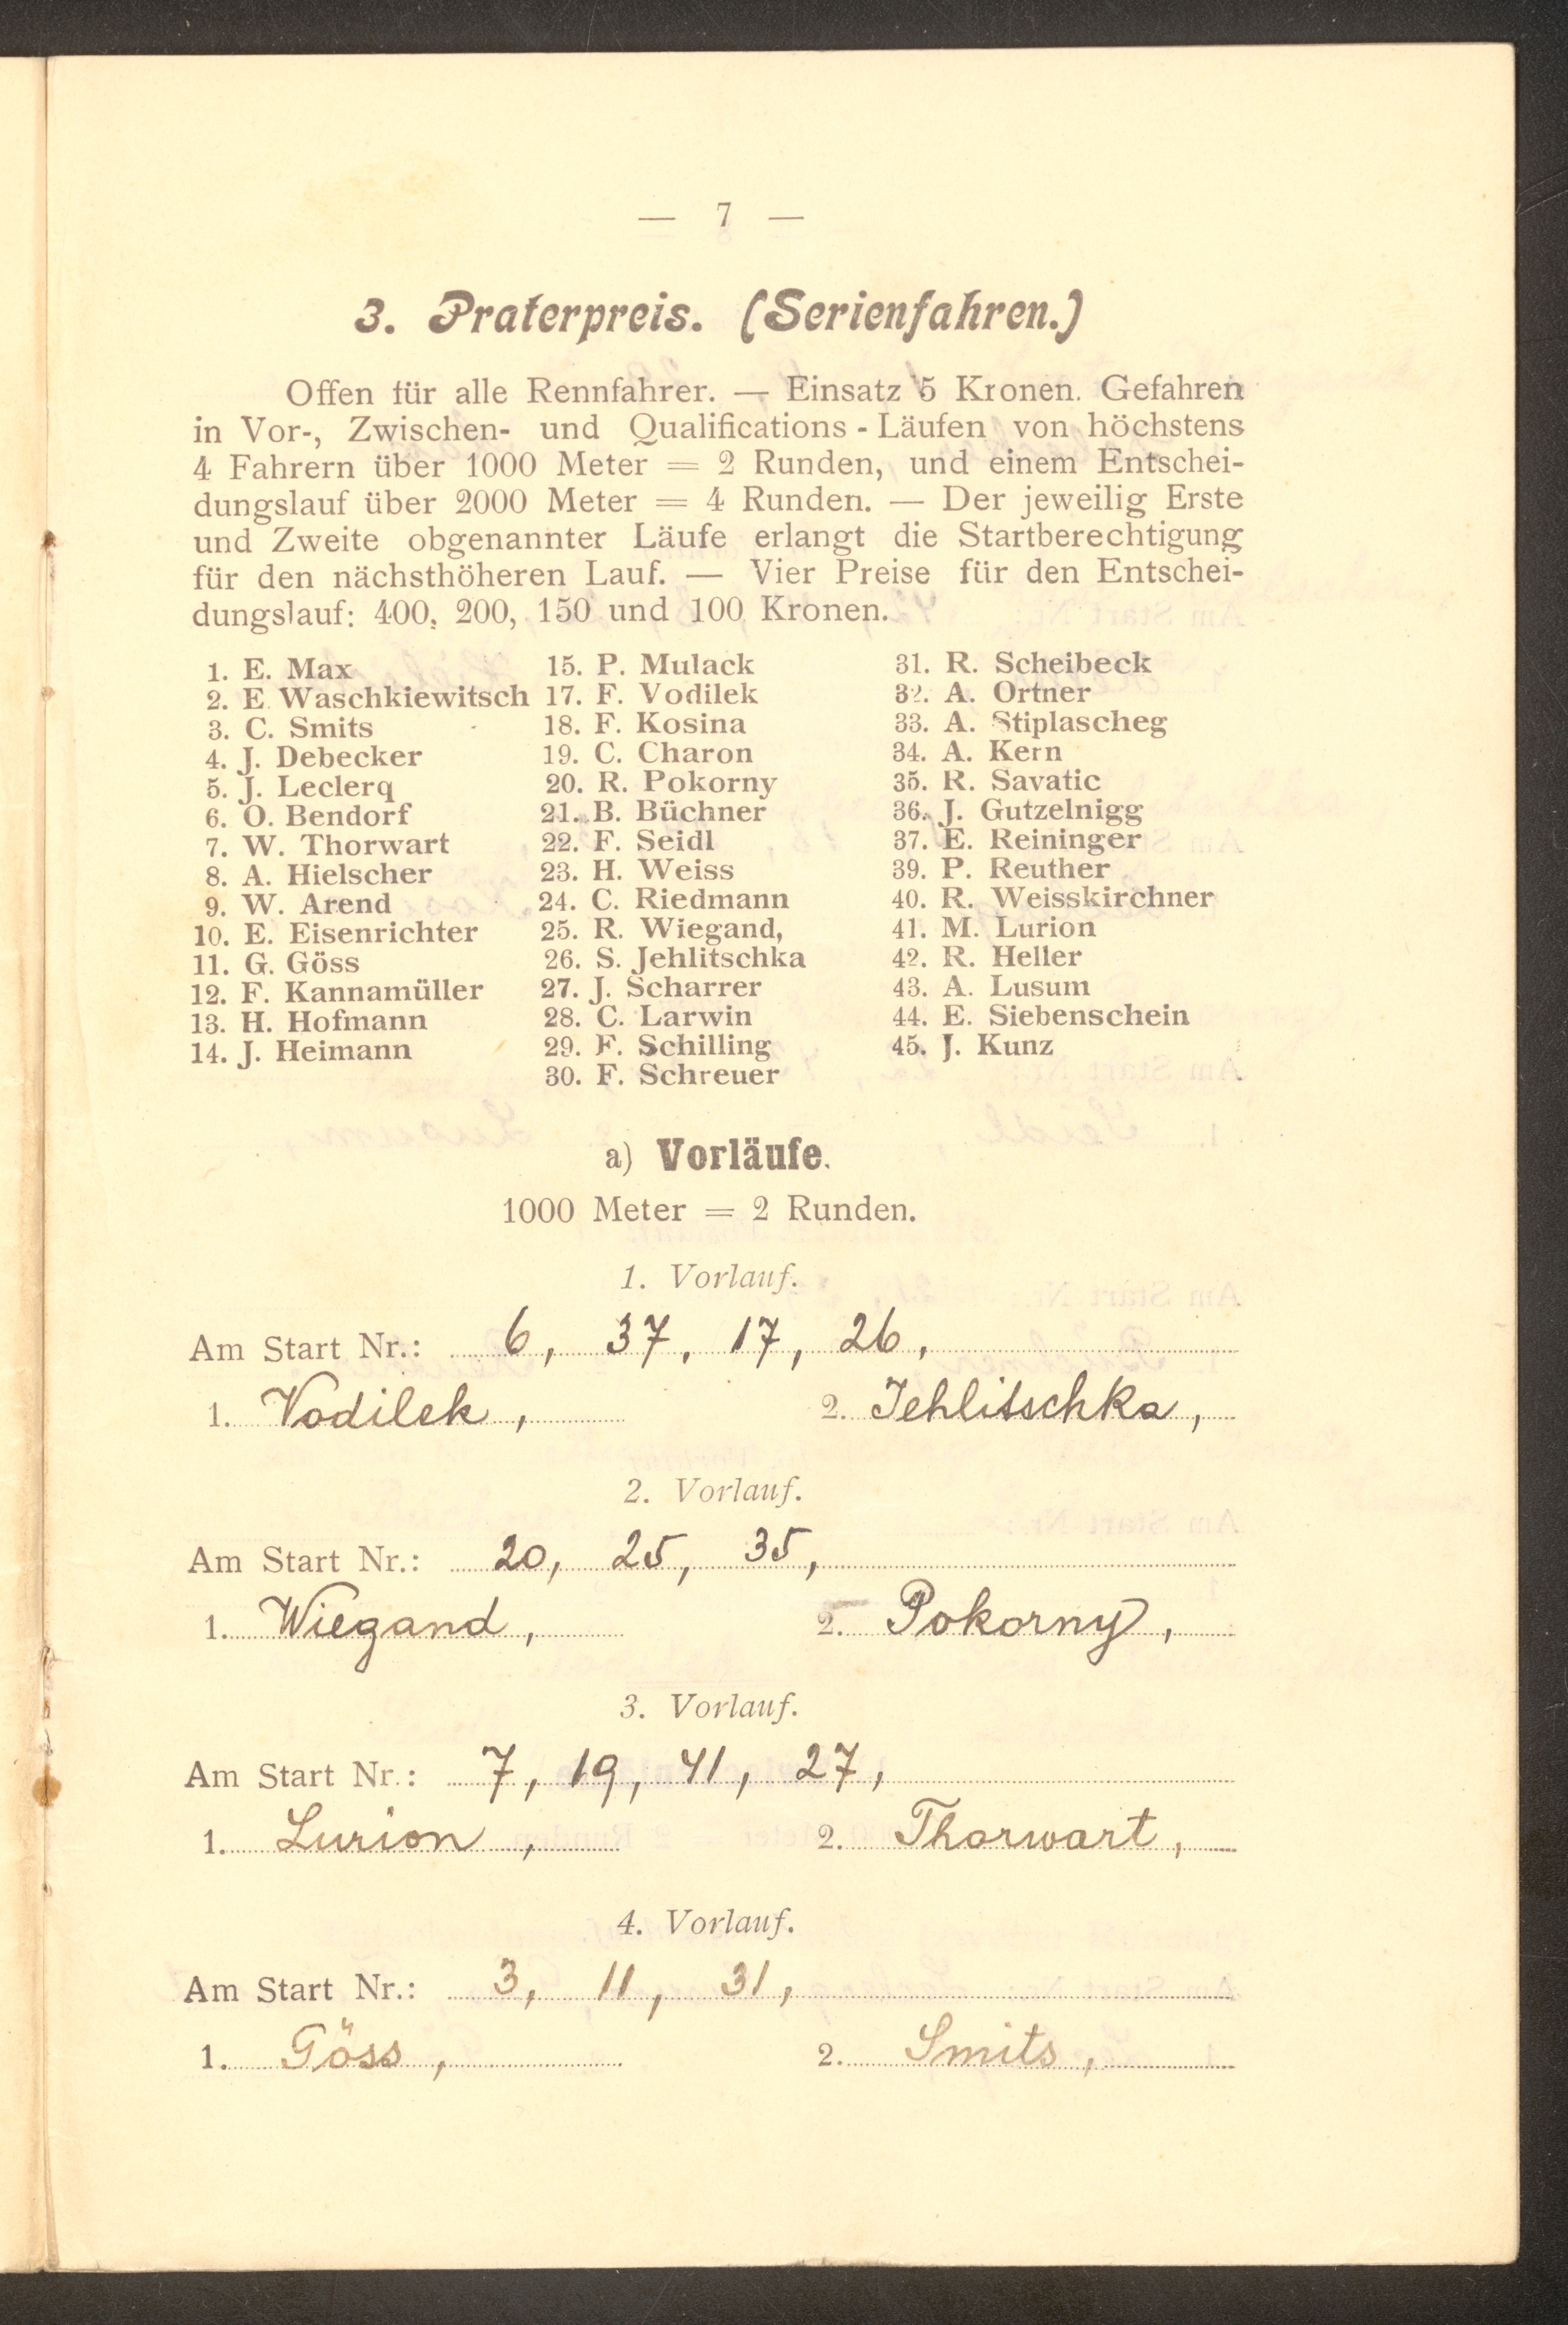 — 7 —
3. Praterpreis. (Serienfahren.)
Offen für alle Rennfahrer. — Einsatz 5 Kronen. Gefahren
in Vor-, Zwischen- und Qualifications - Läufen von höchstens
4 Fahrern über 1000 Meter = 2 Runden, und einem Entschei-
dungslauf über 2000 Meter = 4 Runden. — Der jeweilig Erste
und Zweite obgenannter Läufe erlangt die Startberechtigung
für den nächsthöheren Lauf. — Vier Preise für den Entschei-
dungslauf: 400, 200, 150 und 100 Kronen.
1. E. Max
2. E Waschkiewitsch
3. C. Smits
4. J. Debecker
5. J. Leclerq
6. O. Bendorf
7. W. Thorwart
8. A. Hielscher
9. W. Arend
10. E. Eisenrichter
11. G. Göss
12. F. Kannamüller
13. H. Hofmann
14. J. Heimann
15. P. Mulack
17. F. Vodilek
18. F. Kosina
19. C. Charon
20. R. Pokorny
21. B. Büchner
22. F. Seidl
23. H. Weiss
24. C. Riedmann
25. R. Wiegand,
26. S. Jehlitschka
27. J. Scharrer
28. C. Larwin
29. F. Schilling
30. F. Schreuer
31. R. Scheibeck
32. A. Ortner
33. A. Stiplascheg
34. A. Kern
35. R. Savatic
36. J. Gutzelnigg
37. E. Reininger
39. P. Reuther
40. R. Weisskirchner
41. M. Lurion
42. R. Heller
43. A. Lusum
44. E. Siebenschein
45. J. Kunz
a) Vorläufe.
1000 Meter = 2 Runden.
1. Vorlauf.
Am Start Nr.: 6, 37, 17, 26,
1. Vodilek, 2. Jehlitschka,
2. Vorlauf.
Am Start Nr.: 20, 25, 35,
1. Wiegand, 2. Pokorny,
3. Vorlauf.
Am Start Nr.: 7, 19, 41, 27,
1. Lurion, 2. Thorwart,
4. Vorlauf.
Am Start Nr.: 3, 11, 31,
1. Göss, 2. Smits,